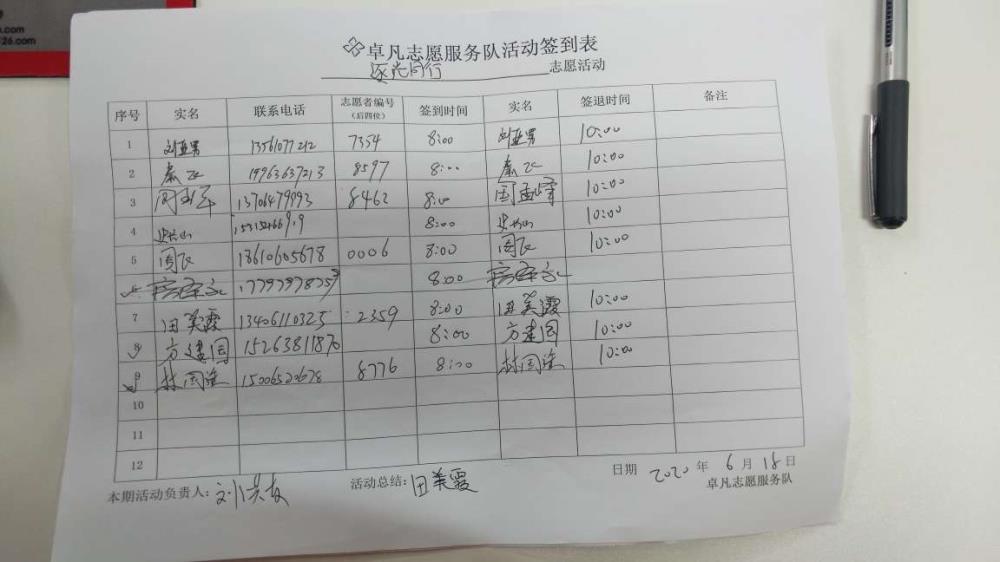 .com
126.com
卓凡志愿服务队活动签到表
逐光同行 志愿活动
序号 实名 联系电话 志愿者编号(后四位) 签到时间 实名 签退时间 备注
1 刘亚男 13561077212 7354 8:00 刘亚男 10:00
2 秦飞 19963637213 8597 8:00 秦飞 10:00
3 13706479093 8462 8:00 周孟峰 10:00
4 8:00 10:00
5 周飞 18610605678 0006 8:00 周飞 10:00
8:00
7 田美霞 13406110325 2359 8:00 田美霞 10:00
8 方建国 15263811870 8:00 方建国 10:00
9 林国强 15006520678 8776 8:00 林国强 10:00
10
11
12
日期 2020 年 6 月 18 日
本期活动负责人: 活动总结: 田美霞 卓凡志愿服务队